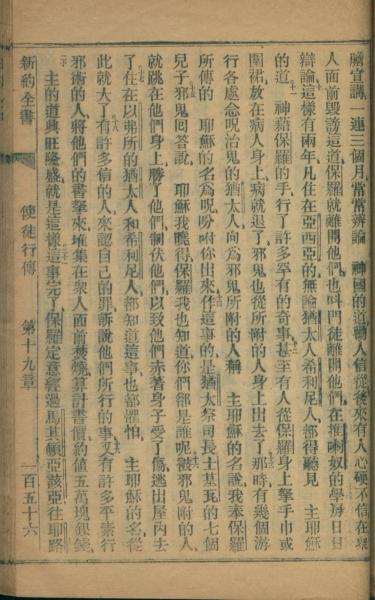 膽宣講、一連三個月、常常辨論　神國的道、勸人信從、後來有人心硬不信、在衆
人面前毀謗這道、保羅就離開他們、也叫門徒離開他們、在推喇奴的學房、日日
辯論、這樣有兩年、凡住在亞西亞的、無論猶太人希利尼人、都得聽見　主耶穌
的道、神藉保羅的手、行了許多罕有的奇事、甚至有人從保羅身上拏手巾或
圍裙、放在病人身上、病就退了、邪鬼也從所附的人身上出去了、那時有幾個游
行各處、念呪治鬼的猶太人、向爲邪鬼所附的人、稱　主耶穌的名說、我奉保羅
所傳的　耶穌的名、爲呪吩咐你出來、作這事的、是猶太祭司長士基瓦的七個
兒子、邪鬼回答說、耶穌我曉得、保羅我也知道、你們卻是誰呢、被邪鬼附的人、
就跳在他們身上、勝了他們、制伏他們、以致他們赤著身子受了傷、逃出屋內去
了、住在以弗所的猶太人和希利尼人、都知道這事、也都懼怕、主耶穌的名、從
此就大了、有許多信的人、來認自己的罪、訴說他們所行的事、又有許多平素行
邪術的人、將他們的書拏來、堆集在衆人面前焚燒、算計書價、約值五萬塊銀錢、
主的道興旺隆盛、就是這樣、這事完了、保羅定意經過馬其頓亞該亞、往耶路
新約全書　使徒行傳　第十九章　一百五十六